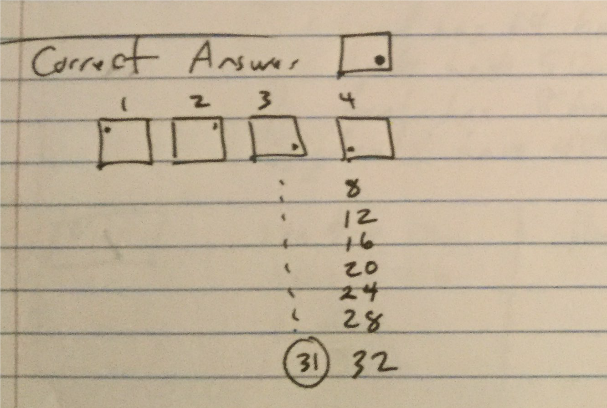 Correct Answer
1 2 3 4
8
12
16
20
24
28
31 32